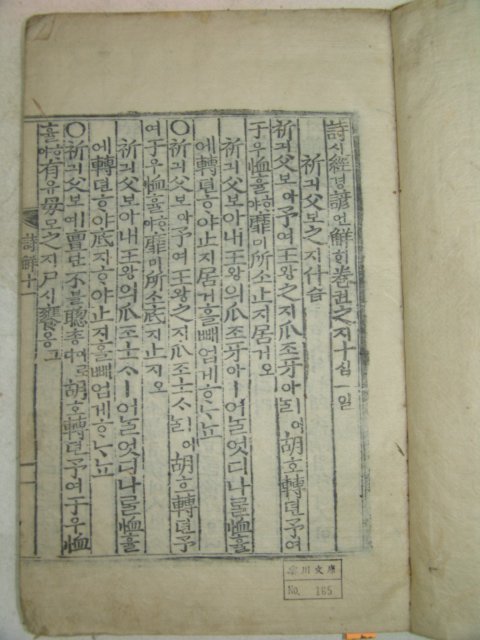 詩시經경諺언解ᄒᆡ卷권之지十십一일
祈긔父보之지什습
祈긔父보아予여王왕之지爪조牙아ㅣ니 胡호轉뎐予여
于우恤휼ᄒᆞ야靡미所소止지居거오
祈긔父보아내王왕의爪조牙아ㅣ어ᄂᆞᆯ엇디나ᄅᆞᆯ恤휼
에轉뎐ᄒᆞ야止지居거홀빼업게ᄒᆞᄂᆞ뇨
○祈긔父보아予여王왕之지爪조士ᄉᆞㅣ니 胡호轉뎐予
여于우恤휼ᄒᆞ야靡미所소底지止지오
祈긔父보아내王왕의爪조士ᄉᆞㅣ어ᄂᆞᆯ엇디나ᄅᆞᆯ恤휼
에轉뎐ᄒᆞ야底지ᄒᆞ야止지홀빼업게ᄒᆞᄂᆞ뇨
○祈긔父보 亶단不블聰총 胡호轉뎐予여于우恤
휼ᄒᆞ야有유母모之지尸시饔옹
詩解十
川文庫
No. 165